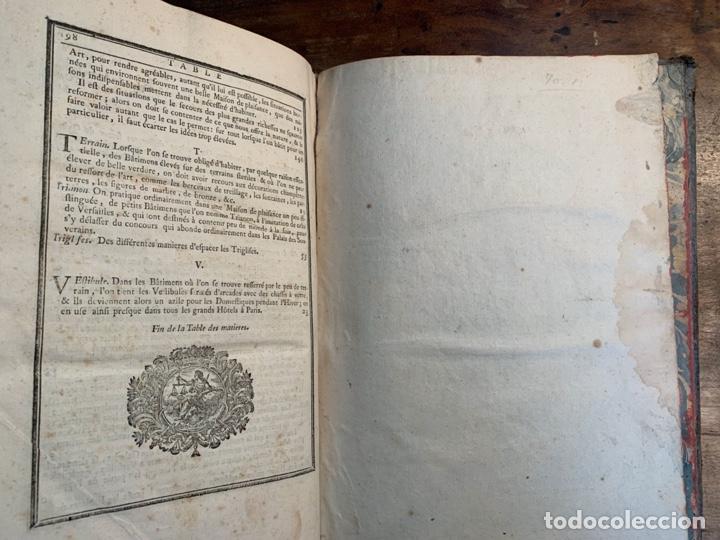 198
TABLE
Art, pour rendre agréables, autant qu'il lui est possible, les situations bor-
nées qui environnent souvent une belle Maison de plaisance, que des rai-
sons indispensables mettent dans la nécessité d'habiter. 125
Il est des situations que le secours des plus grandes richesses ne sçauroit
reformer; alors on doit se contenter de ce que nous offre la nature, & le
faire valoir autant que le cas le permet: sur tout lorsque l'on bâtit pour un
particulier, il faut écarter les idées trop élevées. 196
T.
TErrain. Lorsque l'on se trouve obligé d'habiter, par quelque raison essen-
tielle, des Bâtimens élevés sur des terrains steriles & où l'on ne peut
élever de belle verdure, on doit avoir recours aux décorations champêtres
du ressort de l'art, comme les berceaux de treillage, les fontaines, les par-
terres, les figures de marbre, de bronze, &c.
Trianon. On pratique ordinairement dans une Maison de plaisance un peu dis-
tinguée, de petits Bâtimens que l'on nomme Trianon, à l'imitation de celui
de Versailles, & qui sont destinés à contenir peu de monde à la fois, pour
s'y délasser du concours qui abonde ordinairement dans les Palais des Sou-
verains.
Triglifes. Des différentes manieres d'espacer les Triglifes. 53
V.
VEstibule. Dans les Bâtimens où l'on se trouve resserré par le peu de ter-
rain, l'on tient les Vestibules fermés d'arcades avec des chassis à verre,
& ils deviennent alors un azile pour les Domestiques pendant l'Hiver; on
en use ainsi presque dans tous les grands Hôtels à Paris. 23
Fin de la Table des matieres.
todocoleccion
todocoleccion.net